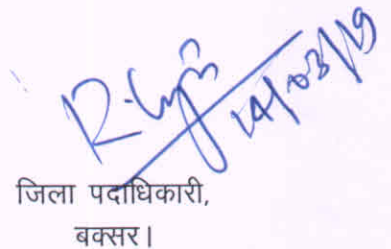 14/03/19
जिला पदाधिकारी,
बक्सर।